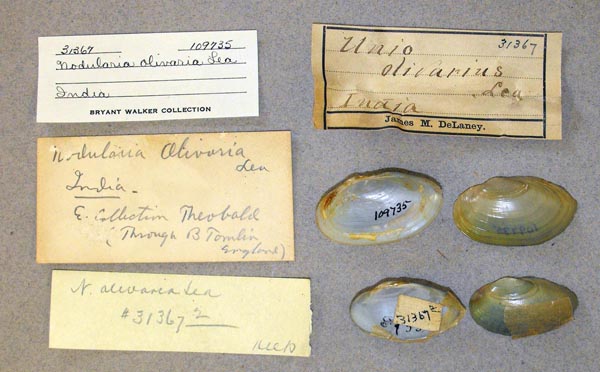 31367 109735
Nodularia olivaria Lea
India
BRYANT WALKER COLLECTION
Unio 31367
olivarius
Lea
India
James M. DeLaney.
Nodularia Olivaria
Lea
India-
E. Collection Theobald
(Through B Tomlin
England)
N. olivaria Lea
#31367 2
109735
109735
31367 2